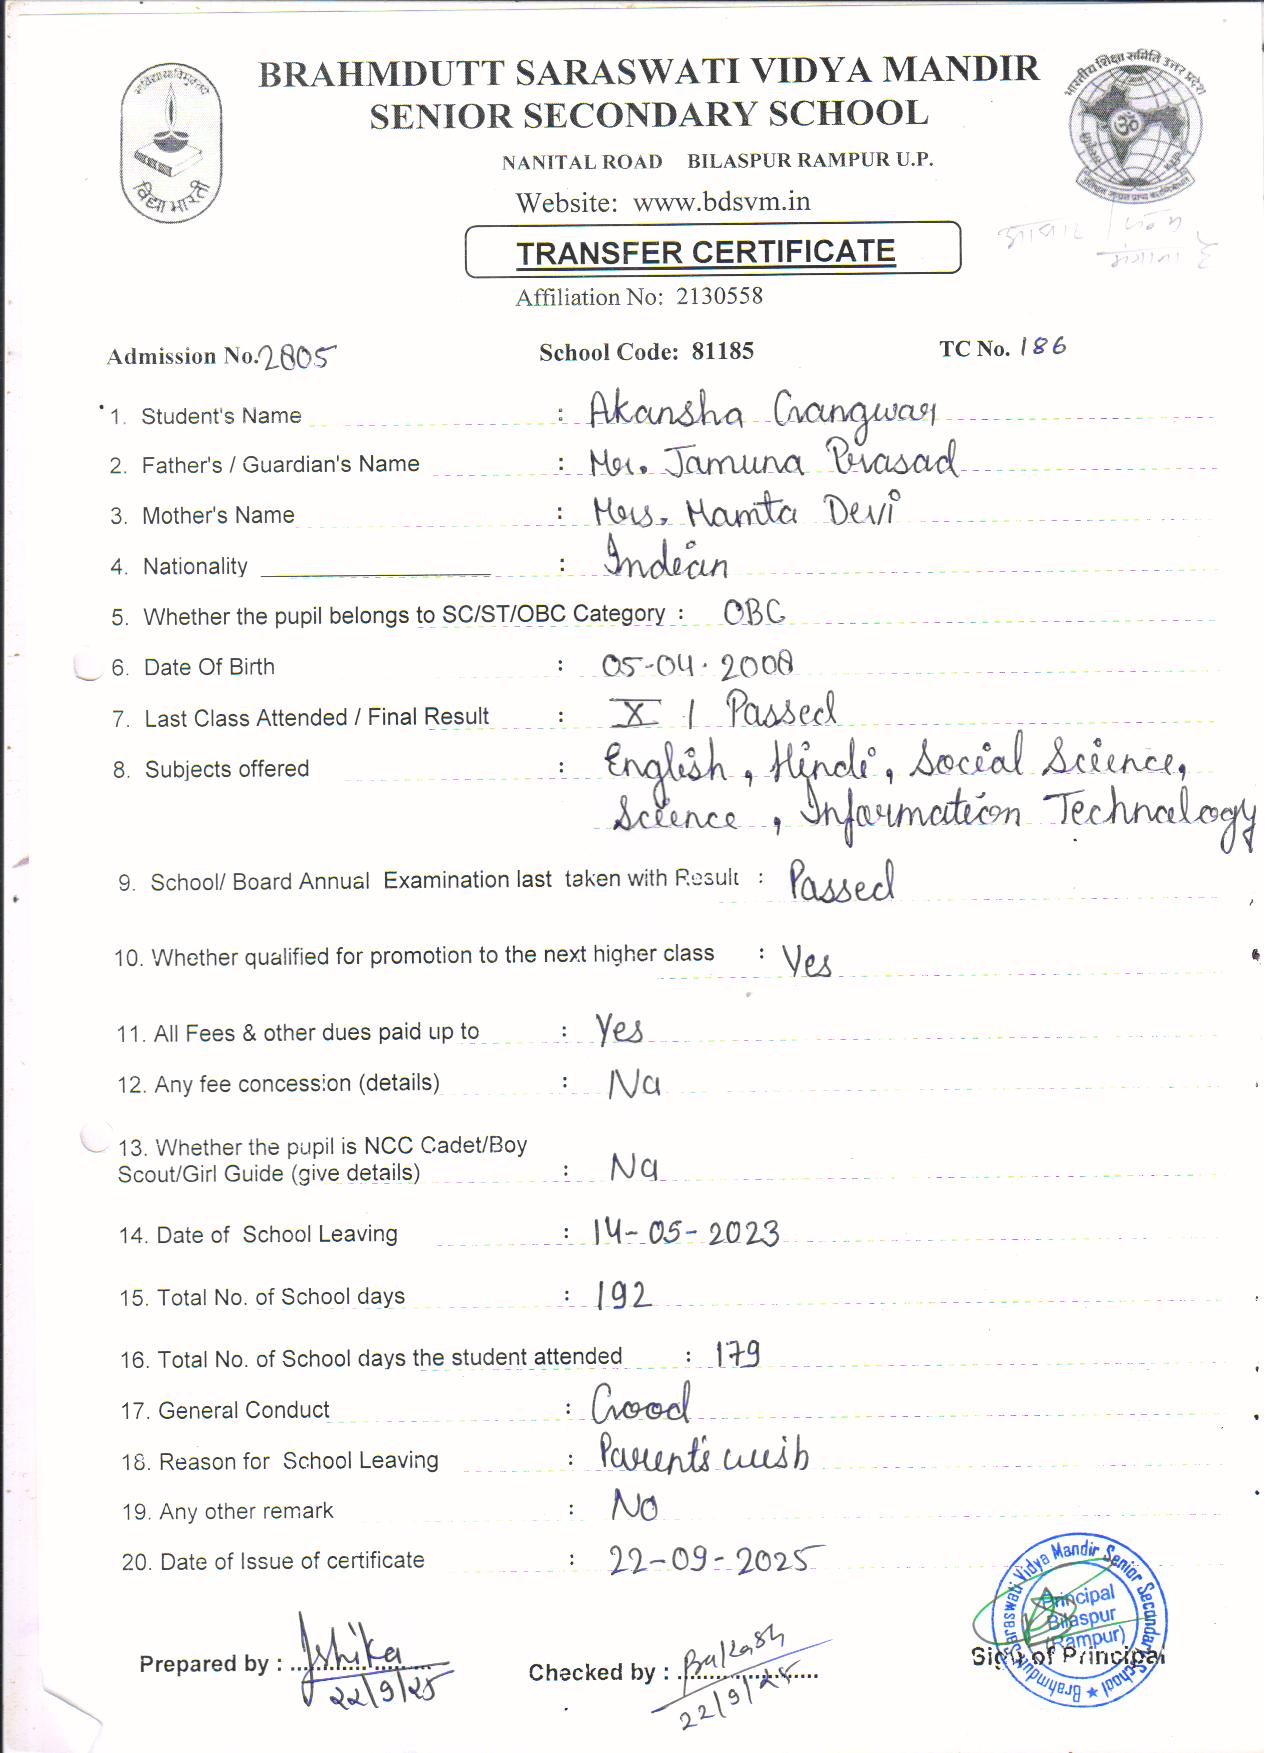 BRAHMDUTT SARASWATI VIDYA MANDIR
SENIOR SECONDARY SCHOOL
NANITAL ROAD BILASPUR RAMPUR U.P.
Website: www.bdsvm.in
विद्या भारती
भारतीय शिक्षा समिति उत्तर प्रदेश
TRANSFER CERTIFICATE
Affiliation No: 2130558
Admission No. 2805 School Code: 81185 TC No. 186
1. Student's Name : Akansha Gangwar
2. Father's / Guardian's Name : Mr. Jamuna Prasad
3. Mother's Name : Mrs. Mamta Devi
4. Nationality : Indian
5. Whether the pupil belongs to SC/ST/OBC Category : OBC
6. Date Of Birth : 05-04-2008
7. Last Class Attended / Final Result : X / Passed
8. Subjects offered : English, Hindi, Social Science,
Science, Information Technology
9. School/ Board Annual Examination last taken with Result : Passed
10. Whether qualified for promotion to the next higher class : Yes
11. All Fees & other dues paid up to : Yes
12. Any fee concession (details) : No
13. Whether the pupil is NCC Cadet/Boy
Scout/Girl Guide (give details) : No
14. Date of School Leaving : 14-05-2023
15. Total No. of School days : 192
16. Total No. of School days the student attended : 179
17. General Conduct : Good
18. Reason for School Leaving : Parent's wish
19. Any other remark : No
20. Date of Issue of certificate : 22-09-2025
Prepared by : Ishika
22/9/25
Checked by :
22/9/25
Sign of Principal
Brahmdutt Saraswati Vidya Mandir Senior Secondary School
Principal
Bilaspur
(Rampur)